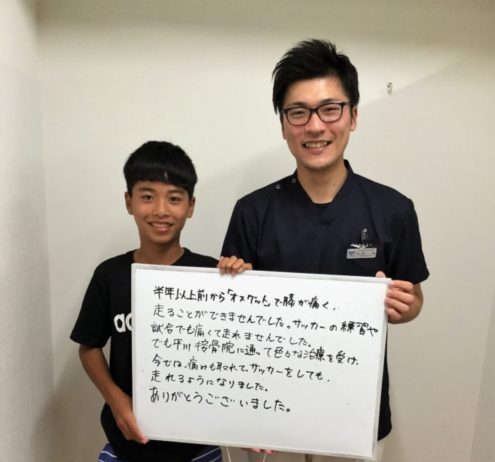 半年以上前から「オスグット」で膝が痛く、
走ることができませんでした。サッカーの練習や
試合でも痛くて走れませんでした。
でも平川接骨院に通って色々な治療を受け、
今では、痛みも取れて、サッカーをしても、
走れるようになりました。
ありがとうございました。